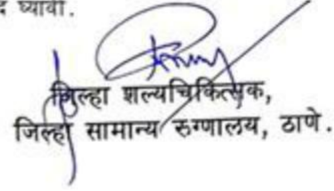 घ्यावी.
जिल्हा शल्यचिकित्सक,
जिल्हा सामान्य रुग्णालय, ठाणे.